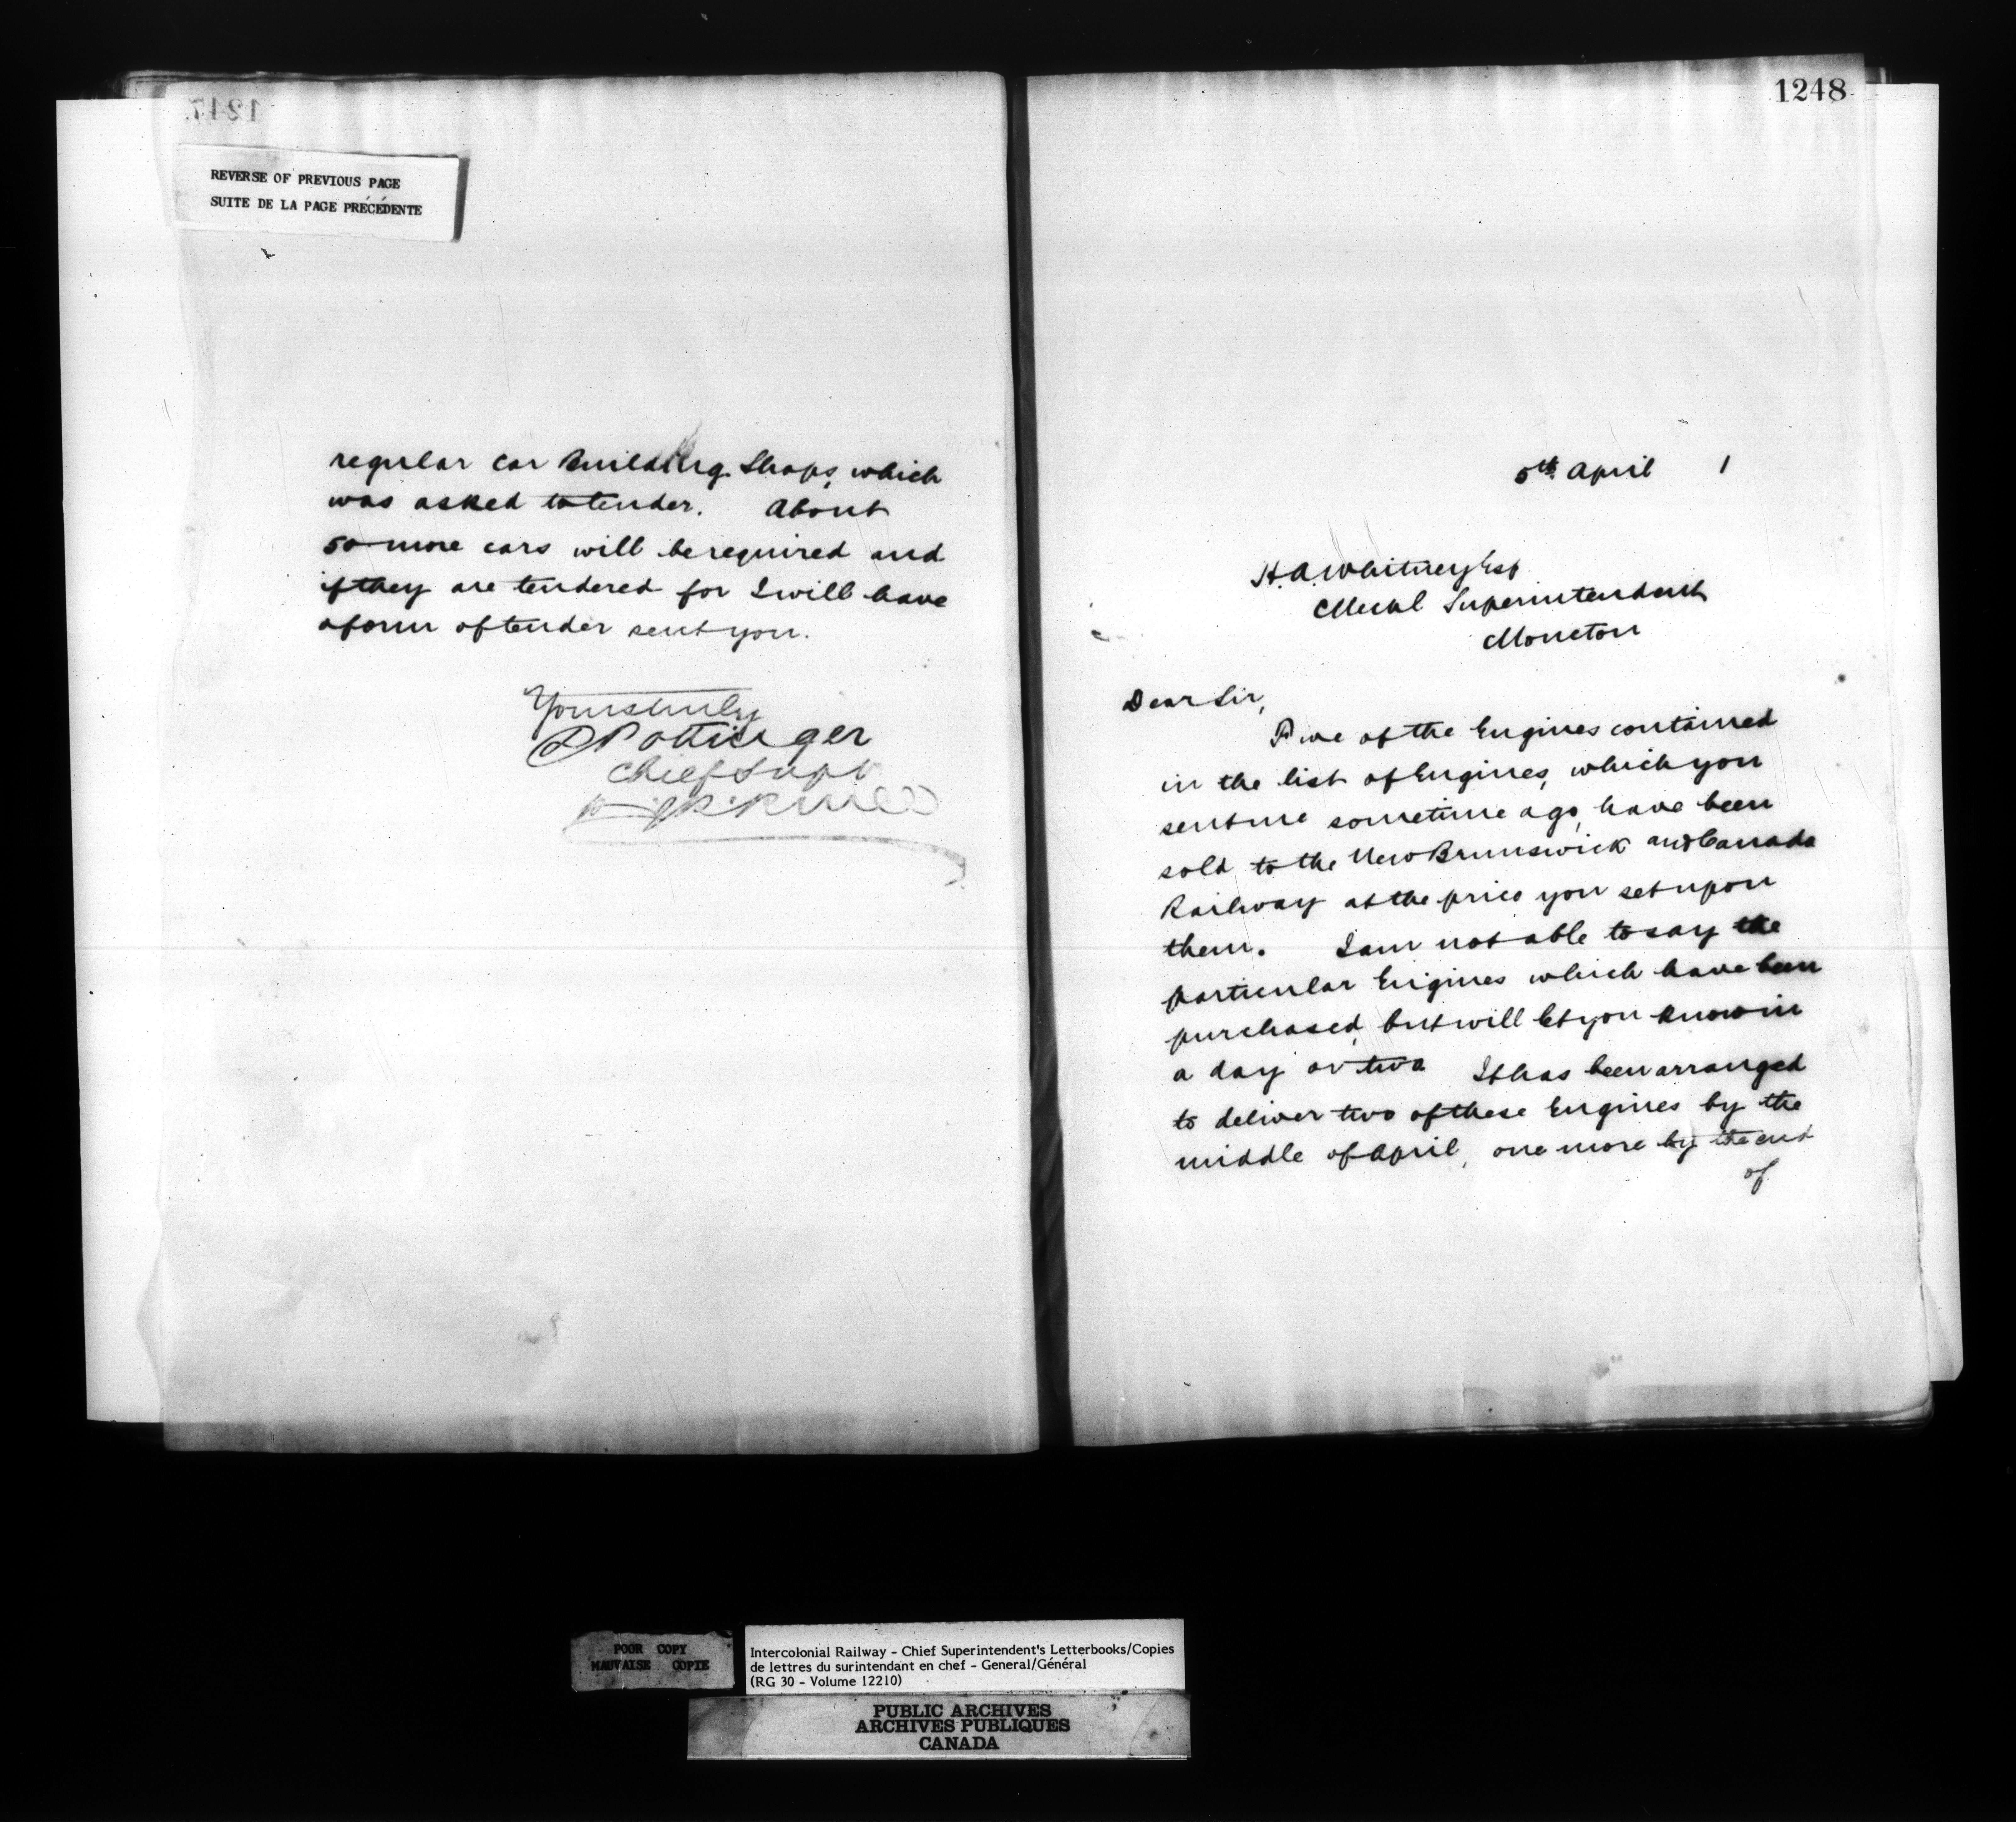 1247
REVERSE OF PREVIOUS PAGE
SUITE DE LA PAGE PRÉCÉDENTE
regular car Building Shops, which
was asked to tender. About
50 more cars will be required and
if they are tendered for I will have
a form of tender sent you.
Yours truly
D Pottinger
Chief Supt
1248
5th April 1
H.A. Whitney Esq
Mechl Superintendent
Moncton
Dear Sir,
Five of the Engines contained
in the list of Engines, which you
sent me sometime ago, have been
sold to the New Brunswick and Canada
Railway at the price you set upon
them. I am not able to say the
particular Engines which have been
purchased, but will let you know in
a day or two It has been arranged
to deliver two of these Engines by the
middle of April, one more by the end
of
POOR COPY
MAUVAISE COPIE
Intercolonial Railway - Chief Superintendent's Letterbooks/Copies
de lettres du surintendant en chef - General/Général
(RG 30 - Volume 12210)
PUBLIC ARCHIVES
ARCHIVES PUBLIQUES
CANADA